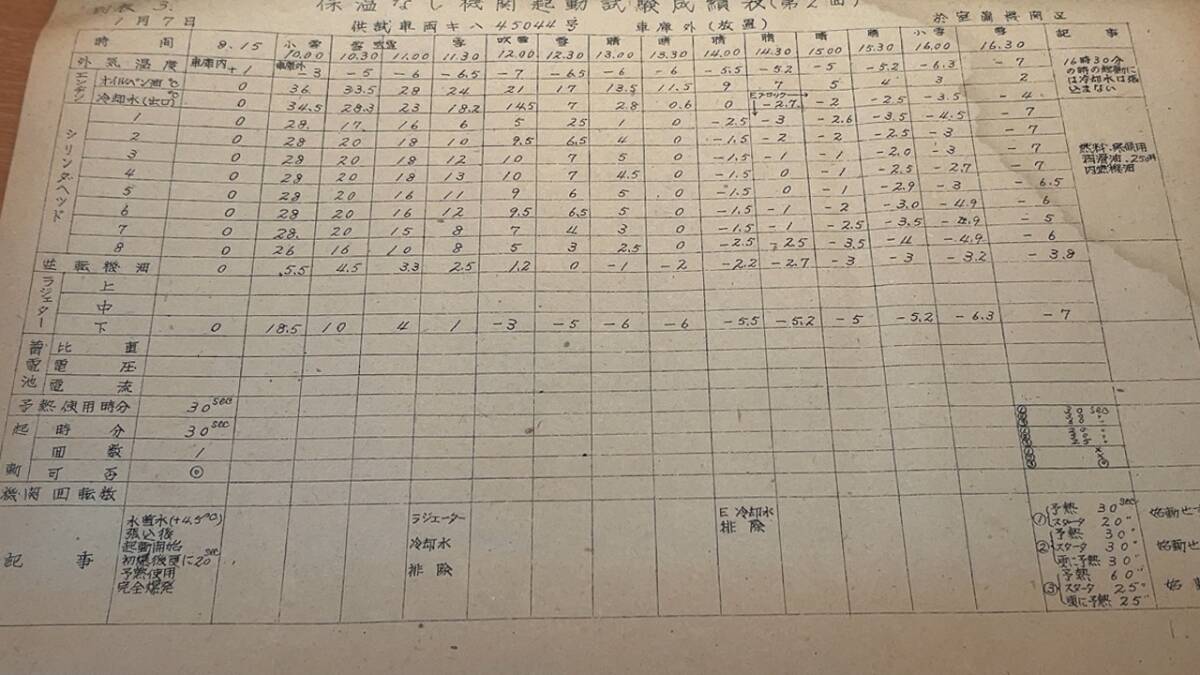 別表 3.
保温なし機関起動試験成績表(第2回)
1月7日
供試車両キハ45044号 車庫外(放置)
於室蘭機関区
時間 8.15 小雪10.00 雪10.30 11.00 雪11.30 吹雪12.00 雪12.30 晴13.00 晴13.30 晴14.00 晴14.30 晴15.00 晴15.30 小雪16.00 雪16.30 記事
外気温度 車庫内+1 車庫外-3 -5 -6 -6.5 -7 -6.5 -6 -6 -5.5 -5.2 -5 -5.2 -6.3 -7
エンヂン オイルパン油℃ 0 36. 33.5 28 24 21 17 13.5 11.5 9 7 5 4 3 2
冷却水(出口)℃ 0 34.5 28.3 23 18.2 14.5 7 2.8 0.6 0 -2.7 -2 -2.5 -3.5 -4
Eブロック
16時30分
の時の起動に
は冷却水は張
込まない
シリンダヘッド
1 0 28. 17. 16 6 5 25 1 0 -2.5 -3 -2.6 -3.5 -4.5 -7
2 0 28 20 18 10 9.5 6.5 4 0 -1.5 -2 -2 -2.5 -3 -7
3 0 28 20 18 12 10 7 5 0 -1.5 -1 -1 -2.0 -3 -7
4 0 28 20 18 13 10 7 4.5 0 -1.5 0 -1 -2.5 -2.7 -7
5 0 28 20 16 11 9 6 5 0 -1.5 0 -1 -2.9 -3 -6.5
6 0 28 20 16 12 9.5 6.5 5 0 -1.5 -1 -2 -3.0 -4.9 -6
7 0 28. 20 15 8 7 4 3 0 -1.5 -1 -2.5 -3.5 -4.9 -5
8 0 26 16 10 8 5 3 2.5 0 -2.5 -2.5 -3.5 -4 -4.9 -6
潤滑油.250#
内燃機油
逆転機油 0 5.5 4.5 3.3 2.5 1.2 0 -1 -2 -2.2 -2.7 -3 -3 -3.2 -3.8
ラジエター
上
中
下 0 18.5 10 4 1 -3 -5 -6 -6 -5.5 -5.2 -5 -5.2 -6.3 -7
蓄電池
比重
電圧
電流
予熱使用時分 30sec
起動
時分 30sec
回数 1
可否 ◎
機関回転数
記事
水蓄水(+4.5℃)
張込後
起動開始
初爆後更に20sec
予熱使用
完全爆発
ラジエーター
冷却水
排除
E 冷却水
排除
① 予熱 30sec
スタータ 20〃
② 予熱 30〃
スタータ 30〃
更に予熱 30〃
③ 予熱 60〃
スタータ 25〃
更に予熱 25〃
始動せ
始動せ
始